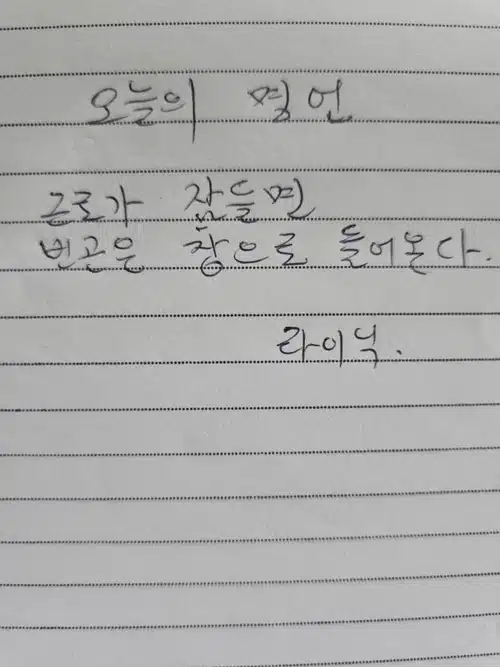 오늘의 명언
근로가 잠들면
빈곤은 창으로 들어온다.
라이닉.